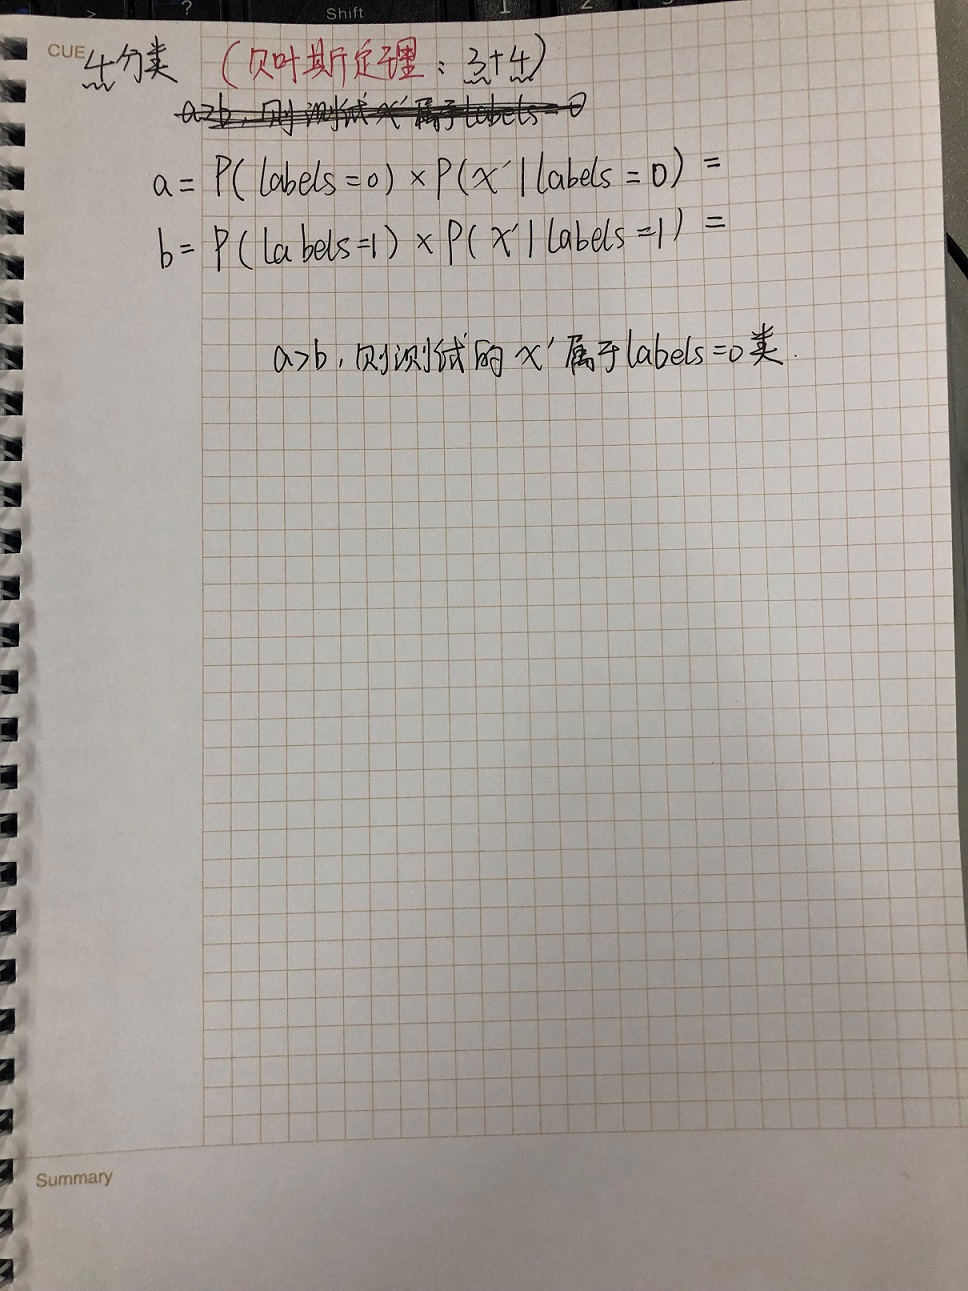 ? Shift 1 2
CUE 4分类 (贝叶斯定理：3+4)
a>b，则测试x'属于labels=0
a = P(labels=0) × P(x'|labels=0) =
b = P(labels=1) × P(x'|labels=1) =
a>b，则测试的x'属于labels=0类.
Summary